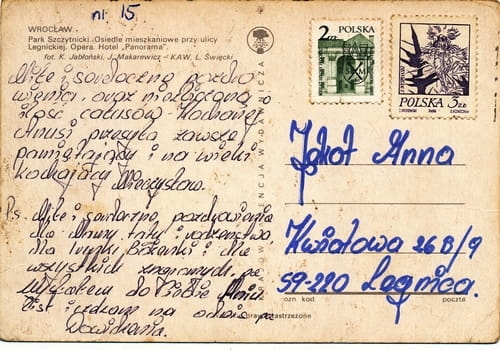 nr 15
WROCŁAW
Park Szczytnicki. Osiedle mieszkaniowe przy ulicy
Legnickiej. Opera. Hotel „Panorama".
fot. K. Jabłoński, J. Makarewicz – KAW, Ł. Święcki
Miłe i serdeczne pozdro
wienia oraz
ilość całusów Kochanej
Anusi przesyła zawsze
pamiętający i na wieki
kochający Mieczysław.
Ps. Miłe i serdeczne pozdrowienia
dla Mamy, taty i
dla i dla
wszystkich znajomych
do Ciebie Aniu
list i czekam na
2 zł
POLSKA
POLSKA 3 zł
Jakot Anna
Kwiatowa 26B/9
59-220 Legnica.
ozn. kod.
poczta
prawa zastrzeżone